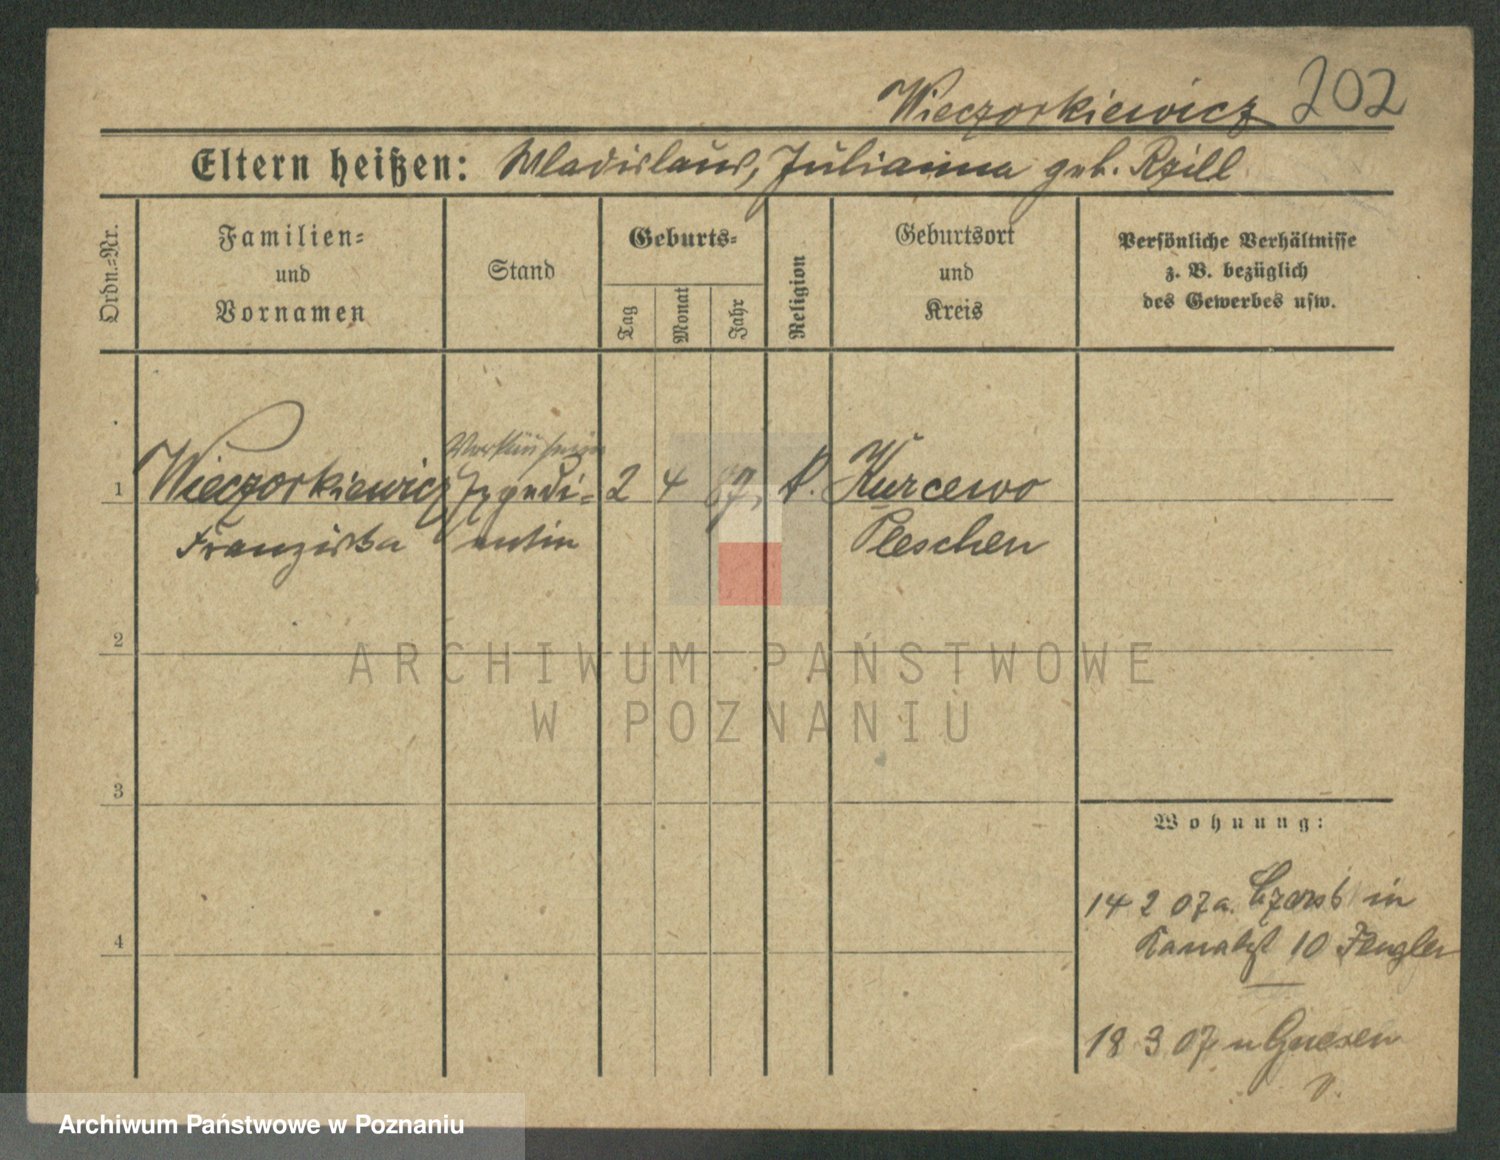 Wieczorkiewicz 202
Eltern heißen: Wladislaus, Julianna geb. Rzill
Ordn.-Nr.
Familien-
und
Vornamen
Stand
Geburts-
Tag
Monat
Jahr
Religion
Geburtsort
und
Kreis
Persönliche Verhältnisse
z. B. bezüglich
des Gewerbes usw.
Verkäuferin
1 Wieczorkiewicz 2 4 87, k. Kurcewo
Franziska Pleschen
2
ARCHIWUM PAŃSTWOWE
W POZNANIU
3
Wohnung:
14 2 07 a. in
Kanalst 10 Fengler
4
18 3 07 n Gnesen
v.
Archiwum Państwowe w Poznaniu